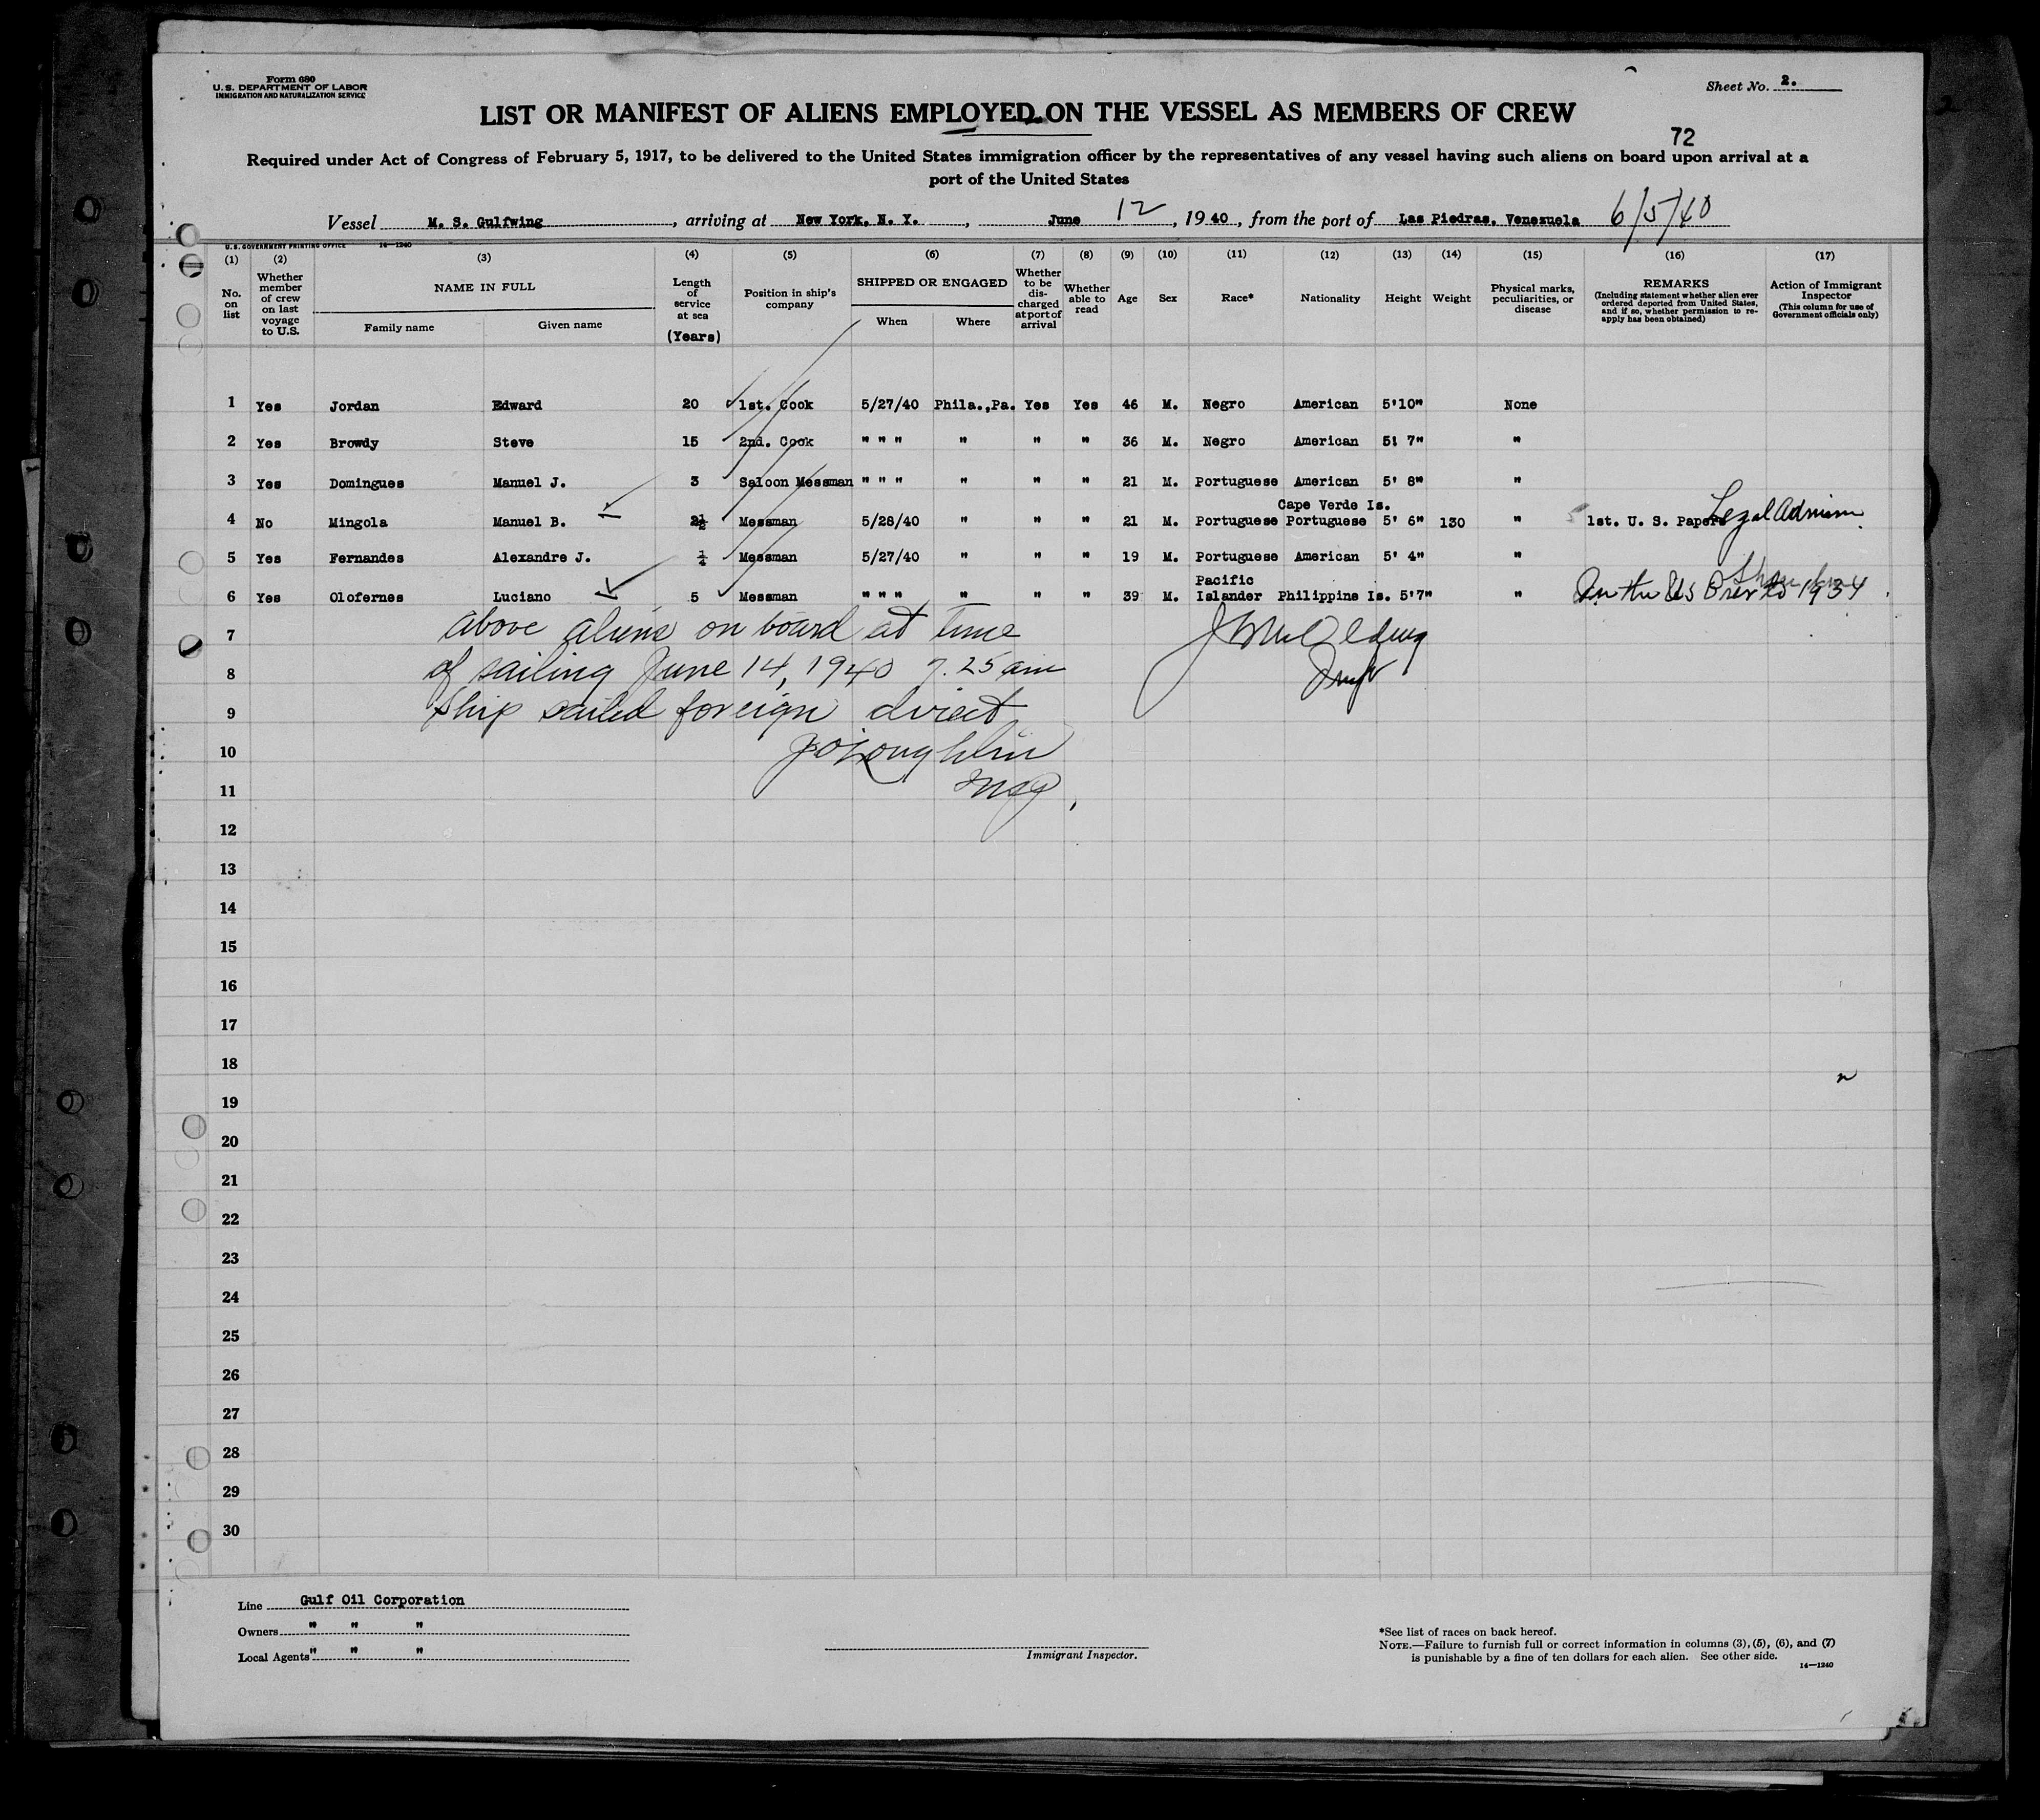 Form 680
U. S. DEPARTMENT OF LABOR
IMMIGRATION AND NATURALIZATION SERVICE
Sheet No. 2.
LIST OR MANIFEST OF ALIENS EMPLOYED ON THE VESSEL AS MEMBERS OF CREW
72
Required under Act of Congress of February 5, 1917, to be delivered to the United States immigration officer by the representatives of any vessel having such aliens on board upon arrival at a
port of the United States
Vessel M. S. Gulfwing, arriving at New York, N. Y., June 12, 1940, from the port of Las Piedras, Venezuela 6/5/40
U.S. GOVERNMENT PRINTING OFFICE 14—1240
(1) (2) (3) (4) (5) (6) (7) (8) (9) (10) (11) (12) (13) (14) (15) (16) (17)
No. on list
Whether member of crew on last voyage to U.S.
NAME IN FULL
Family name
Given name
Length of service at sea
(Years)
Position in ship's company
SHIPPED OR ENGAGED
When
Where
Whether to be discharged at port of arrival
Whether able to read
Age
Sex
Race*
Nationality
Height
Weight
Physical marks, peculiarities, or disease
REMARKS
(Including statement whether alien ever ordered deported from United States, and if so, whether permission to reapply has been obtained)
Action of Immigrant Inspector
(This column for use of Government officials only)
1 Yes Jordan Edward 20 1st. Cook 5/27/40 Phila.,Pa. Yes Yes 46 M. Negro American 5'10" None
2 Yes Browdy Steve 15 2nd. Cook " " " " " " 36 M. Negro American 5' 7" "
3 Yes Domingues Manuel J. 3 Saloon Messman " " " " " " 21 M. Portuguese American 5' 8" "
Cape Verde Is.
4 No Mingola Manuel B. 2½ Messman 5/28/40 " " " 21 M. Portuguese Portuguese 5' 6" 130 " 1st. U. S. Papers Legal Admission
5 Yes Fernandes Alexandre J. ¼ Messman 5/27/40 " " " 19 M. Portuguese American 5' 4" "
Pacific
6 Yes Olofernes Luciano 5 Messman " " " " " " 39 M. Islander Philippine Is. 5'7" " In the US Prior to 1934
above aliens on board at time
of sailing June 14, 1940 7.25 am
ship sailed foreign direct
JO'Loughlin
Insp.
7
8
9
10
11
12
13
14
15
16
17
18
19
20
21
22
23
24
25
26
27
28
29
30
Line Gulf Oil Corporation
Owners " " "
Local Agents " " "
Immigrant Inspector.
*See list of races on back hereof.
NOTE.—Failure to furnish full or correct information in columns (3), (5), (6), and (7)
is punishable by a fine of ten dollars for each alien. See other side.
14—1240